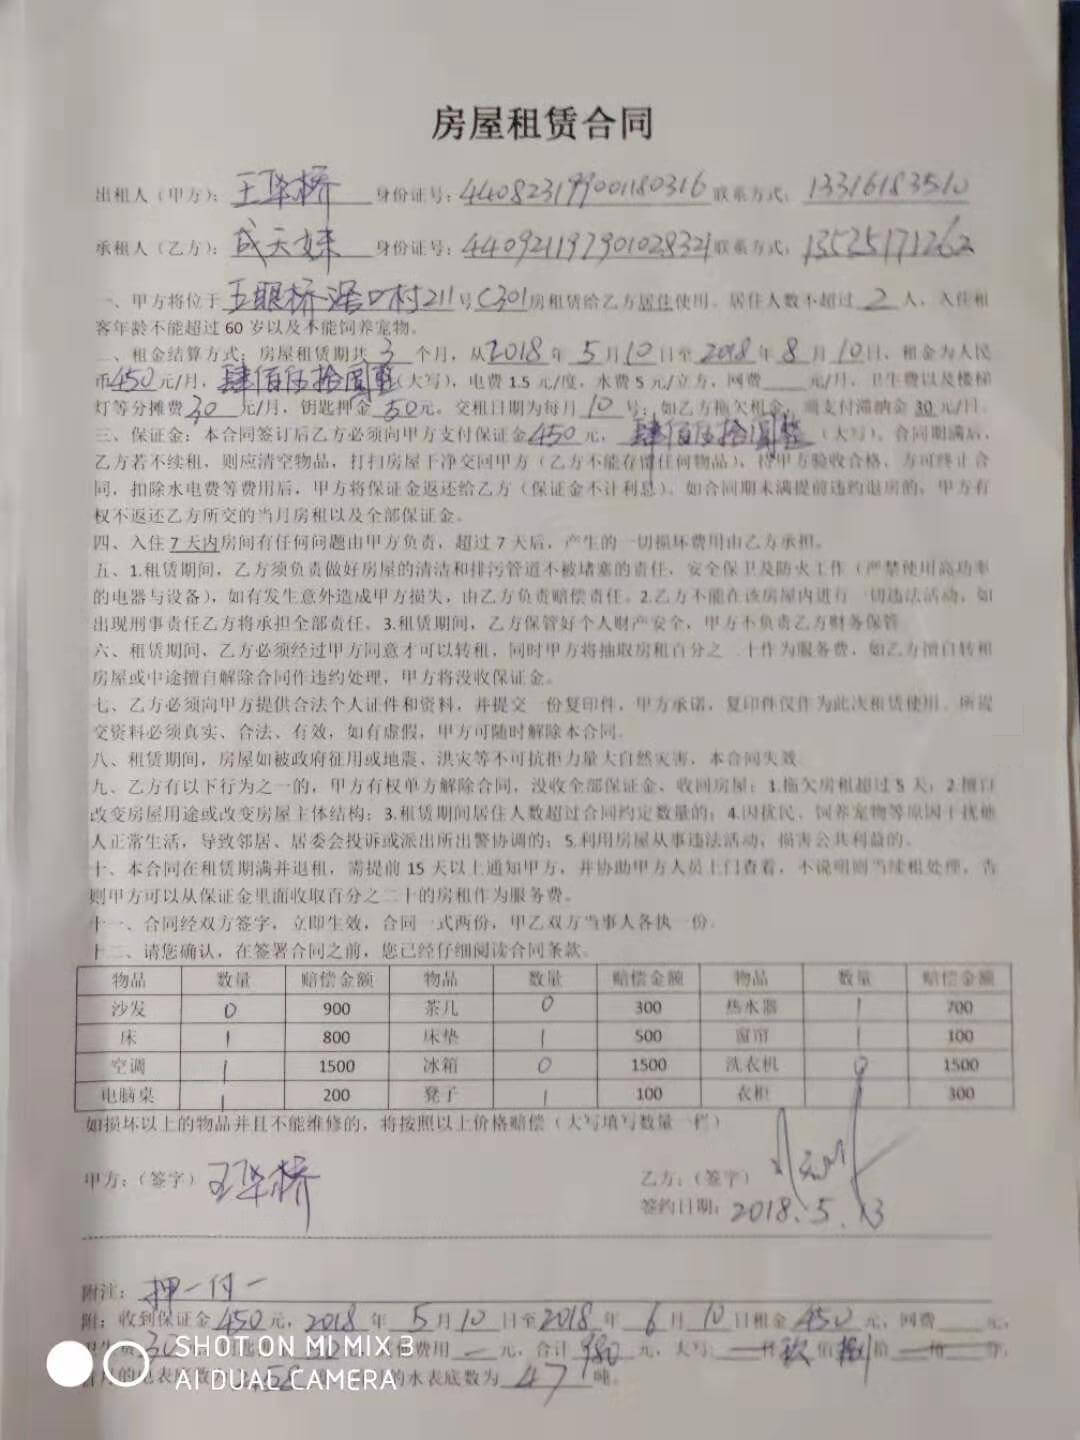 房屋租赁合同
出租人（甲方）：王华桥 身份证号：440823199001180316 联系方式：13316183510
承租人（乙方）：成天妹 身份证号：440921197901028321 联系方式：13525171262
一、甲方将位于五眼桥滘口村211号C301房租赁给乙方居住使用。居住人数不超过2人，入住租
客年龄不能超过60岁以及不能饲养宠物。
二、租金结算方式：房屋租赁期共3个月，从2018年5月10日至2018年8月10日，租金为人民
币450元/月，肆佰伍拾圆整（大写），电费1.5元/度，水费5元/立方，网费____元/月，卫生费以及楼梯
灯等分摊费30元/月，钥匙押金50元。交租日期为每月10号；如乙方拖欠租金，需支付滞纳金30元/日。
三、保证金：本合同签订后乙方必须向甲方支付保证金450元，肆佰伍拾圆整（大写）。合同期满后，
乙方若不续租，则应清空物品，打扫房屋干净交回甲方（乙方不能存留任何物品），待甲方验收合格，方可终止合
同，扣除水电费等费用后，甲方将保证金返还给乙方（保证金不计利息）。如合同期未满提前违约退房的，甲方有
权不返还乙方所交的当月房租以及全部保证金。
四、入住7天内房间有任何问题由甲方负责，超过7天后，产生的一切损坏费用由乙方承担。
五、1.租赁期间，乙方须负责做好房屋的清洁和排污管道不被堵塞的责任，安全保卫及防火工作（严禁使用高功率
的电器与设备），如有发生意外造成甲方损失，由乙方负责赔偿责任。2.乙方不能在该房屋内进行一切违法活动，如
出现刑事责任乙方将承担全部责任。3.租赁期间，乙方保管好个人财产安全，甲方不负责乙方财务保管
六、租赁期间，乙方必须经过甲方同意才可以转租，同时甲方将抽取房租百分之二十作为服务费，如乙方擅自转租
房屋或中途擅自解除合同作违约处理，甲方将没收保证金。
七、乙方必须向甲方提供合法个人证件和资料，并提交一份复印件，甲方承诺，复印件仅作为此次租赁使用。所提
交资料必须真实、合法、有效，如有虚假，甲方可随时解除本合同。
八、租赁期间，房屋如被政府征用或地震、洪灾等不可抗拒力量大自然灾害，本合同失效
九、乙方有以下行为之一的，甲方有权单方解除合同，没收全部保证金、收回房屋：1.拖欠房租超过5天；2.擅自
改变房屋用途或改变房屋主体结构；3.租赁期间居住人数超过合同约定数量的；4.因扰民、饲养宠物等原因干扰他
人正常生活，导致邻居、居委会投诉或派出所出警协调的；5.利用房屋从事违法活动，损害公共利益的。
十、本合同在租赁期满并退租，需提前15天以上通知甲方，并协助甲方人员上门查看，不说明则当续租处理，否
则甲方可以从保证金里面收取百分之二十的房租作为服务费。
十一、合同经双方签字，立即生效，合同一式两份，甲乙双方当事人各执一份。
十二、请您确认，在签署合同之前，您已经仔细阅读合同条款。
物品 数量 赔偿金额 物品 数量 赔偿金额 物品 数量 赔偿金额
沙发 0 900 茶几 0 300 热水器 1 700
床 1 800 床垫 1 500 窗帘 1 100
空调 1 1500 冰箱 0 1500 洗衣机 0 1500
电脑桌 1 200 凳子 1 100 衣柜 300
如损坏以上的物品并且不能维修的，将按照以上价格赔偿（大写填写数量一栏）
甲方：（签字）王华桥 乙方：（签字）
签约日期：2018.5.13
附注：押一付一
附：收到保证金450元，2018年5月10日至2018年6月10日租金450元，网费____元，
卫生费30 费用一元，合计980元，大写： 仟玖佰捌拾
的水表底数为47吨。
SHOT ON MI MIX 3
AI DUAL CAMERA